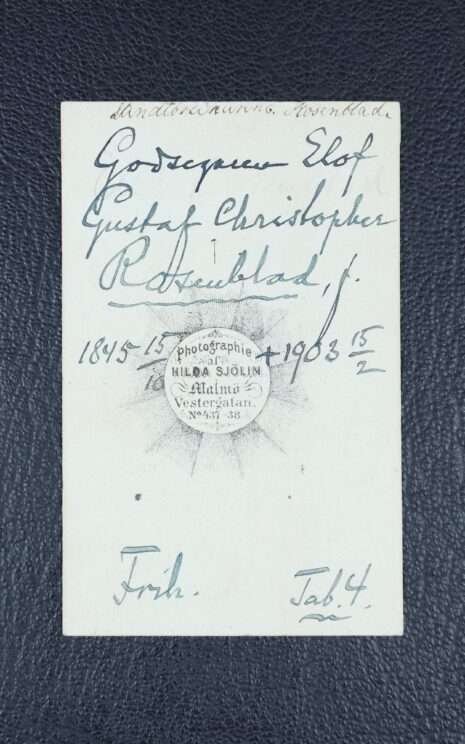 Rosenblad.
Godsegaren Elof
Gustaf Christopher
Rosenblad, f.
1845 15/10 +1903 15/2
Photographie
af
HILDA SJÖLIN
Malmö
Vestergatan.
No 437-38.
Frih. Tab. 4.